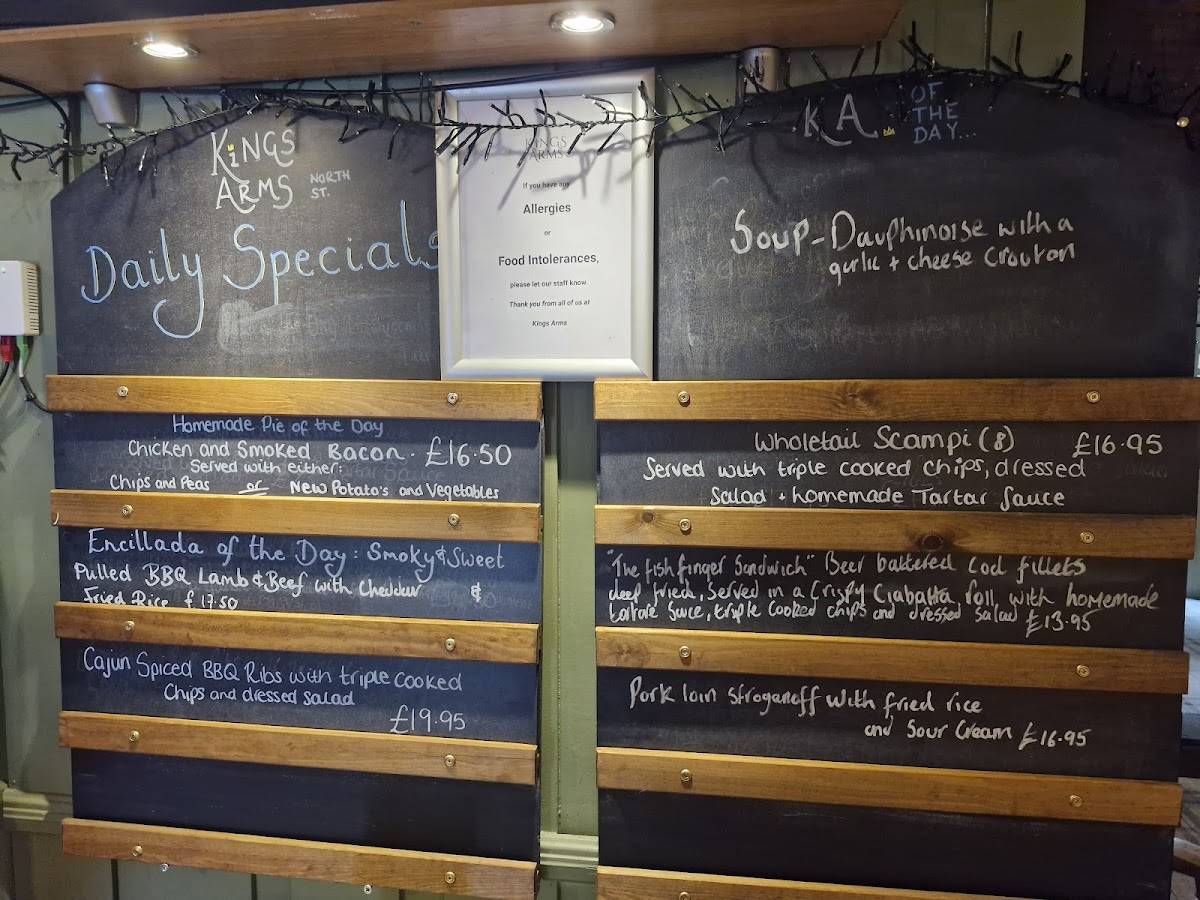 KiNGS
ARMS NORTH
ST.
Daily Specials
Homemade Pie of the Day
Chicken and Smoked Bacon. £16.50
Served with either:
Chips and Peas or New Potato's and Vegetables
Encillada of the Day: Smoky & Sweet
Pulled BBQ Lamb & Beef with Cheddar &
Fried Rice £17.50
Cajun Spiced BBQ Ribs with triple cooked
Chips and dressed salad
£19.95
KINGS
ARMS
If you have any
Allergies
or
Food Intolerances,
please let our staff know
Thank you from all of us at
Kings Arms
KA OF
THE
DAY...
Soup - Dauphinoise with a
garlic + cheese Crouton
Wholetail Scampi (8) £16.95
Served with triple cooked chips, dressed
Salad + homemade Tartar Sauce
"The fish finger Sandwich" Beer battered Cod fillets
deep fried, Served in a Crispy Ciabatta roll, with homemade
tartare Sauce, triple cooked chips and dressed salad £13.95
Pork loin stroganoff with fried rice
and Sour Cream £16.95